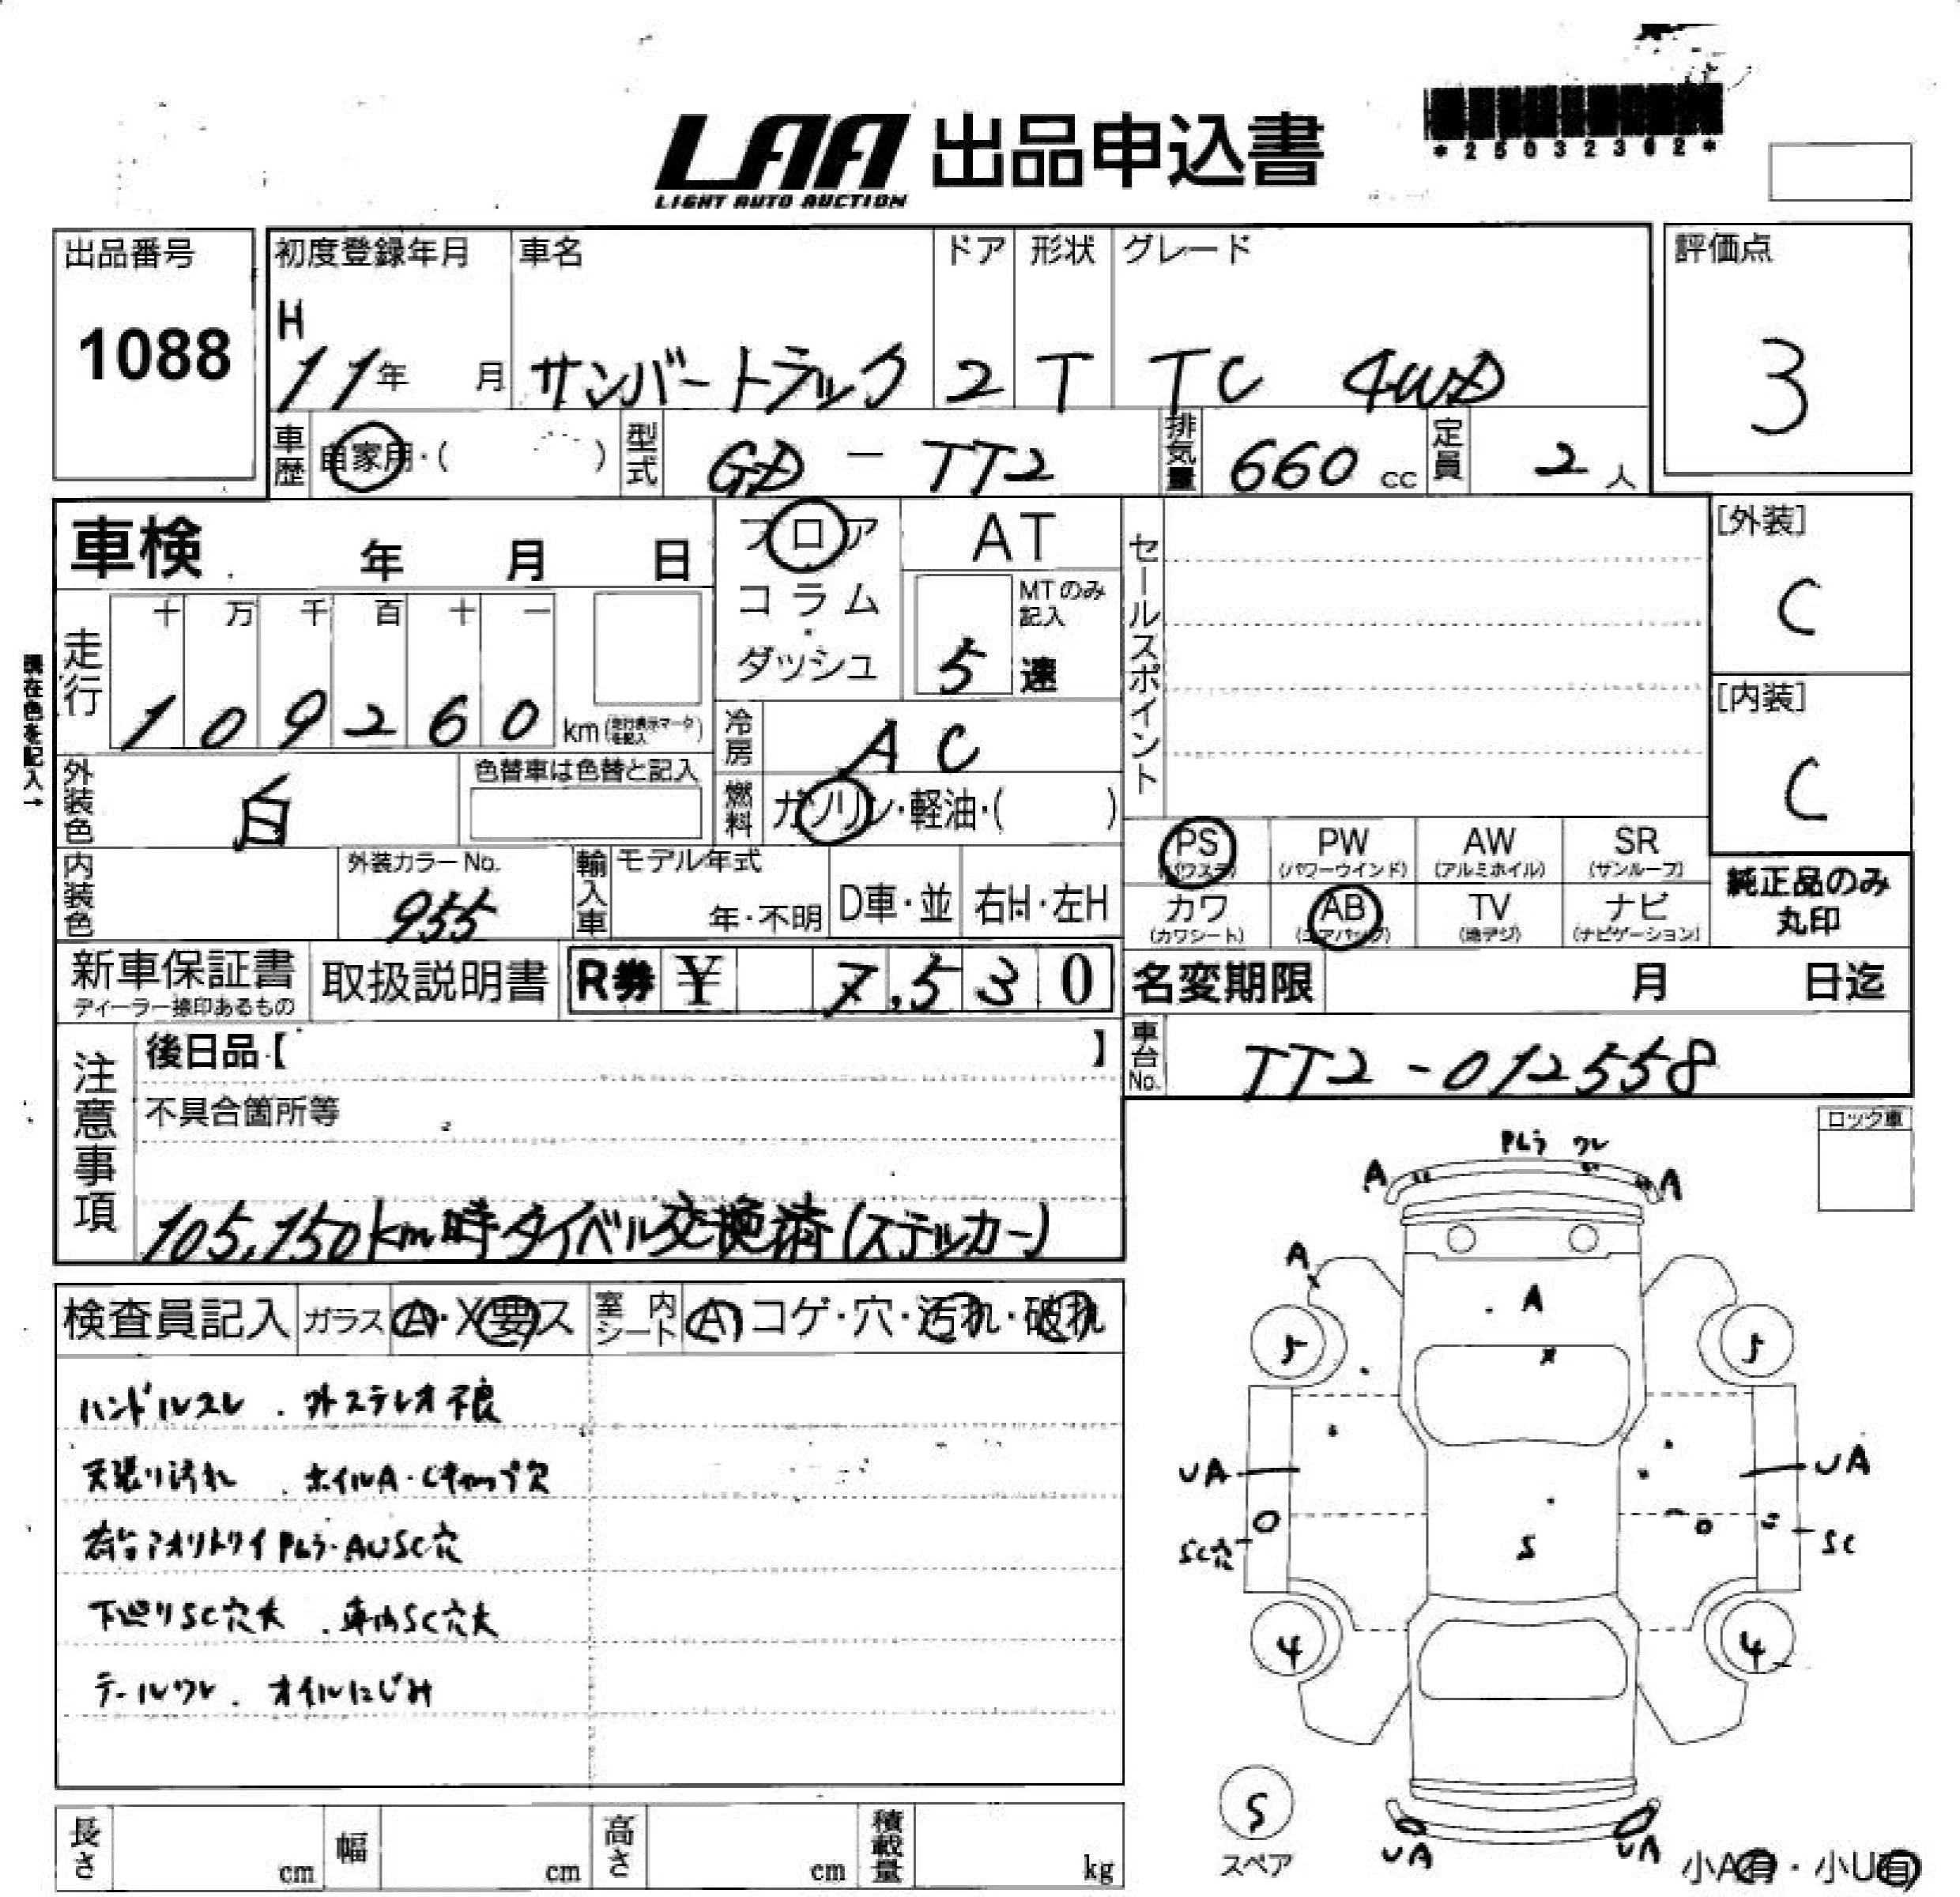 LAA 出品申込書
LIGHT AUTO AUCTION
*25032362*
出品番号
1088
初度登録年月
H
11年 月
車名
サンバートラック
ドア
2
形状
T
グレード
TC 4WD
評価点
3
車歴 自家用・( )
型式 GD-TT2
排気量 660cc
定員 2人
車検 年 月 日
フロア
コラム
ダッシュ
AT
MTのみ記入
5 速
セールスポイント
[外装]
C
[内装]
C
現在色を記入→
走行
十 万 千 百 十 一
1 0 9 2 6 0 km (走行表示マークを記入)
冷房 AC
外装色 白
色替車は色替と記入
燃料 ガソリン・軽油・( )
PS (パワステ)
PW (パワーウインド)
AW (アルミホイル)
SR (サンルーフ)
カワ (カワシート)
AB (エアバック)
TV (地デジ)
ナビ (ナビゲーション)
純正品のみ
丸印
内装色
外装カラーNo.
955
輸入車
モデル年式
年・不明
D車・並
右H・左H
新車保証書
ディーラー捺印あるもの
取扱説明書
R券 ¥ 7,530
名変期限 月 日迄
車台No. TT2-012558
注意事項
後日品【 】
不具合箇所等
105,150km時タイベル交換済(ステッカー)
ロック車
検査員記入
ガラス A・X要ス
室内シート A コゲ・穴・汚れ・破れ
ハンドルスレ . 外ステレオ不良
天張り汚れ . ホイルA・Cキャップ欠
荷台アオリトリイPムラ・AUSC穴
下廻りSC穴大 . 車内SC穴大
テールワレ . オイルにじみ
Pムラ ワレ
A
A
A
A
5
5
UA
UA
SC穴
SC
S
4
4
S
スペア
UA
UA
小A有・小U有
長さ cm
幅 cm
高さ cm
積載量 kg